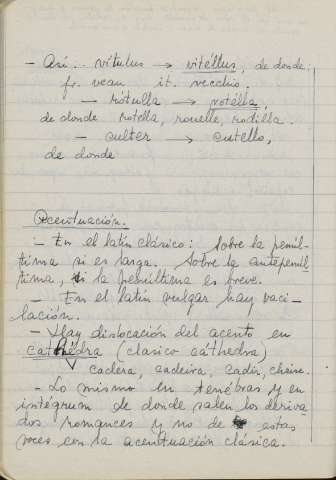 - Así.. vítulus → vitéllus, de donde:
fr. veau it. vecchio.
- rótulla → rotélla,
de donde rotella, rouelle, rodilla.
- culter → cutello,
de donde
Acentuación.
- En el latín clásico: Sobre la penúl-
tima si es larga. Sobre la antepenúl-
tima, si la penúltima es breve.
- En el latín vulgar hay vaci-
lación.
- Hay dislocación del acento en
cathédra (clásico cáthedra)
cadera, cadeira, cadir, chaire.
- Lo mismo en tenébras y en
intégrum de donde salen los deriva
dos romances y no de estas
voces con la acentuación clásica.